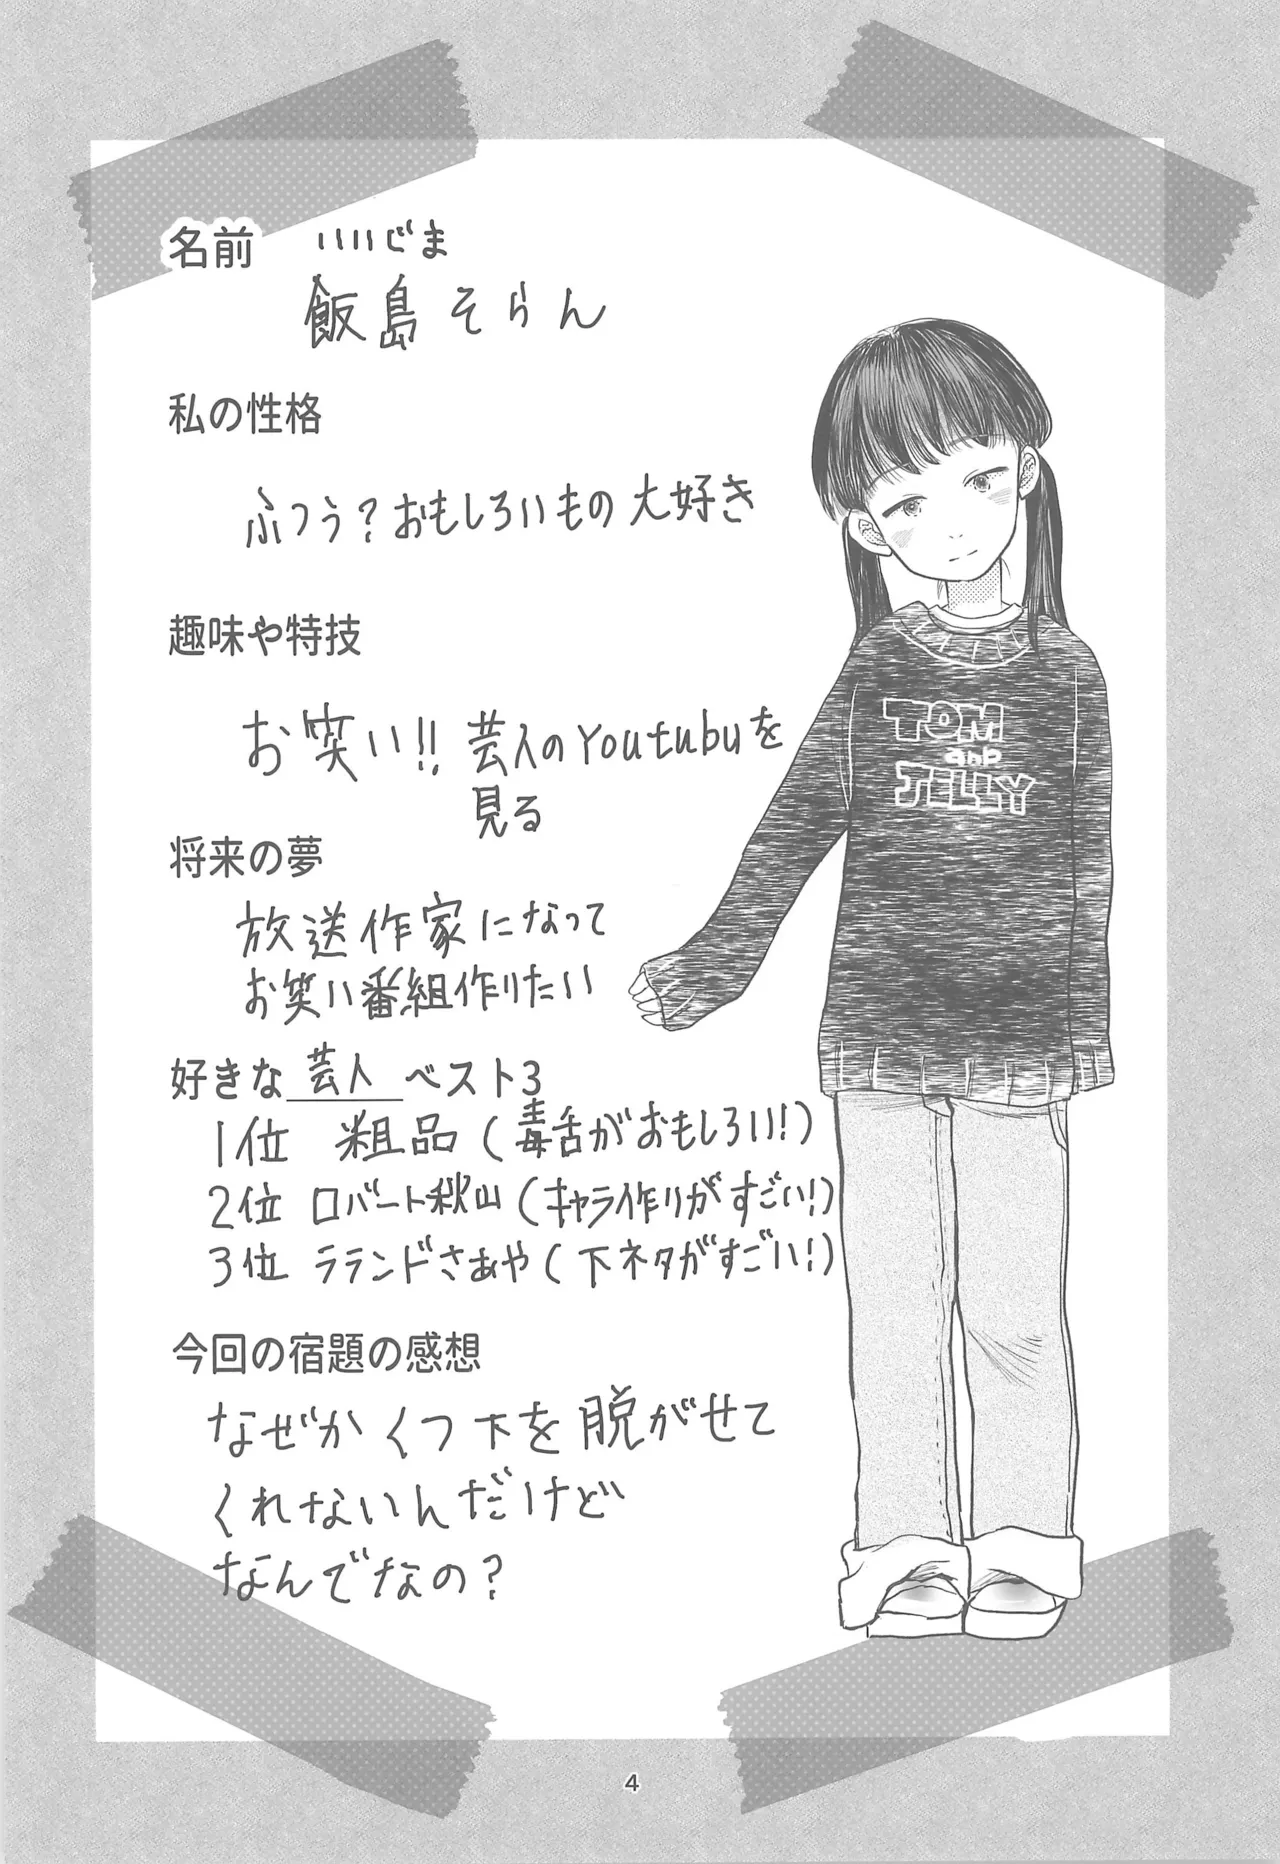 名前
いいじま
飯島そらん
私の性格
ふつう?おもしろいもの大好き
趣味や特技
お笑い!!芸人のYoutubuを
見る
TOM
and
JELLY
将来の夢
放送作家になって
お笑い番組作りたい
好きな芸人ベスト3
1位 粗品(毒舌がおもしろい!)
2位 ロバート秋山(キャラ作りがすごい!)
3位 ラランドさあや(下ネタがすごい!)
今回の宿題の感想
なぜかくつ下を脱がせて
くれないんだけど
なんでなの?
4